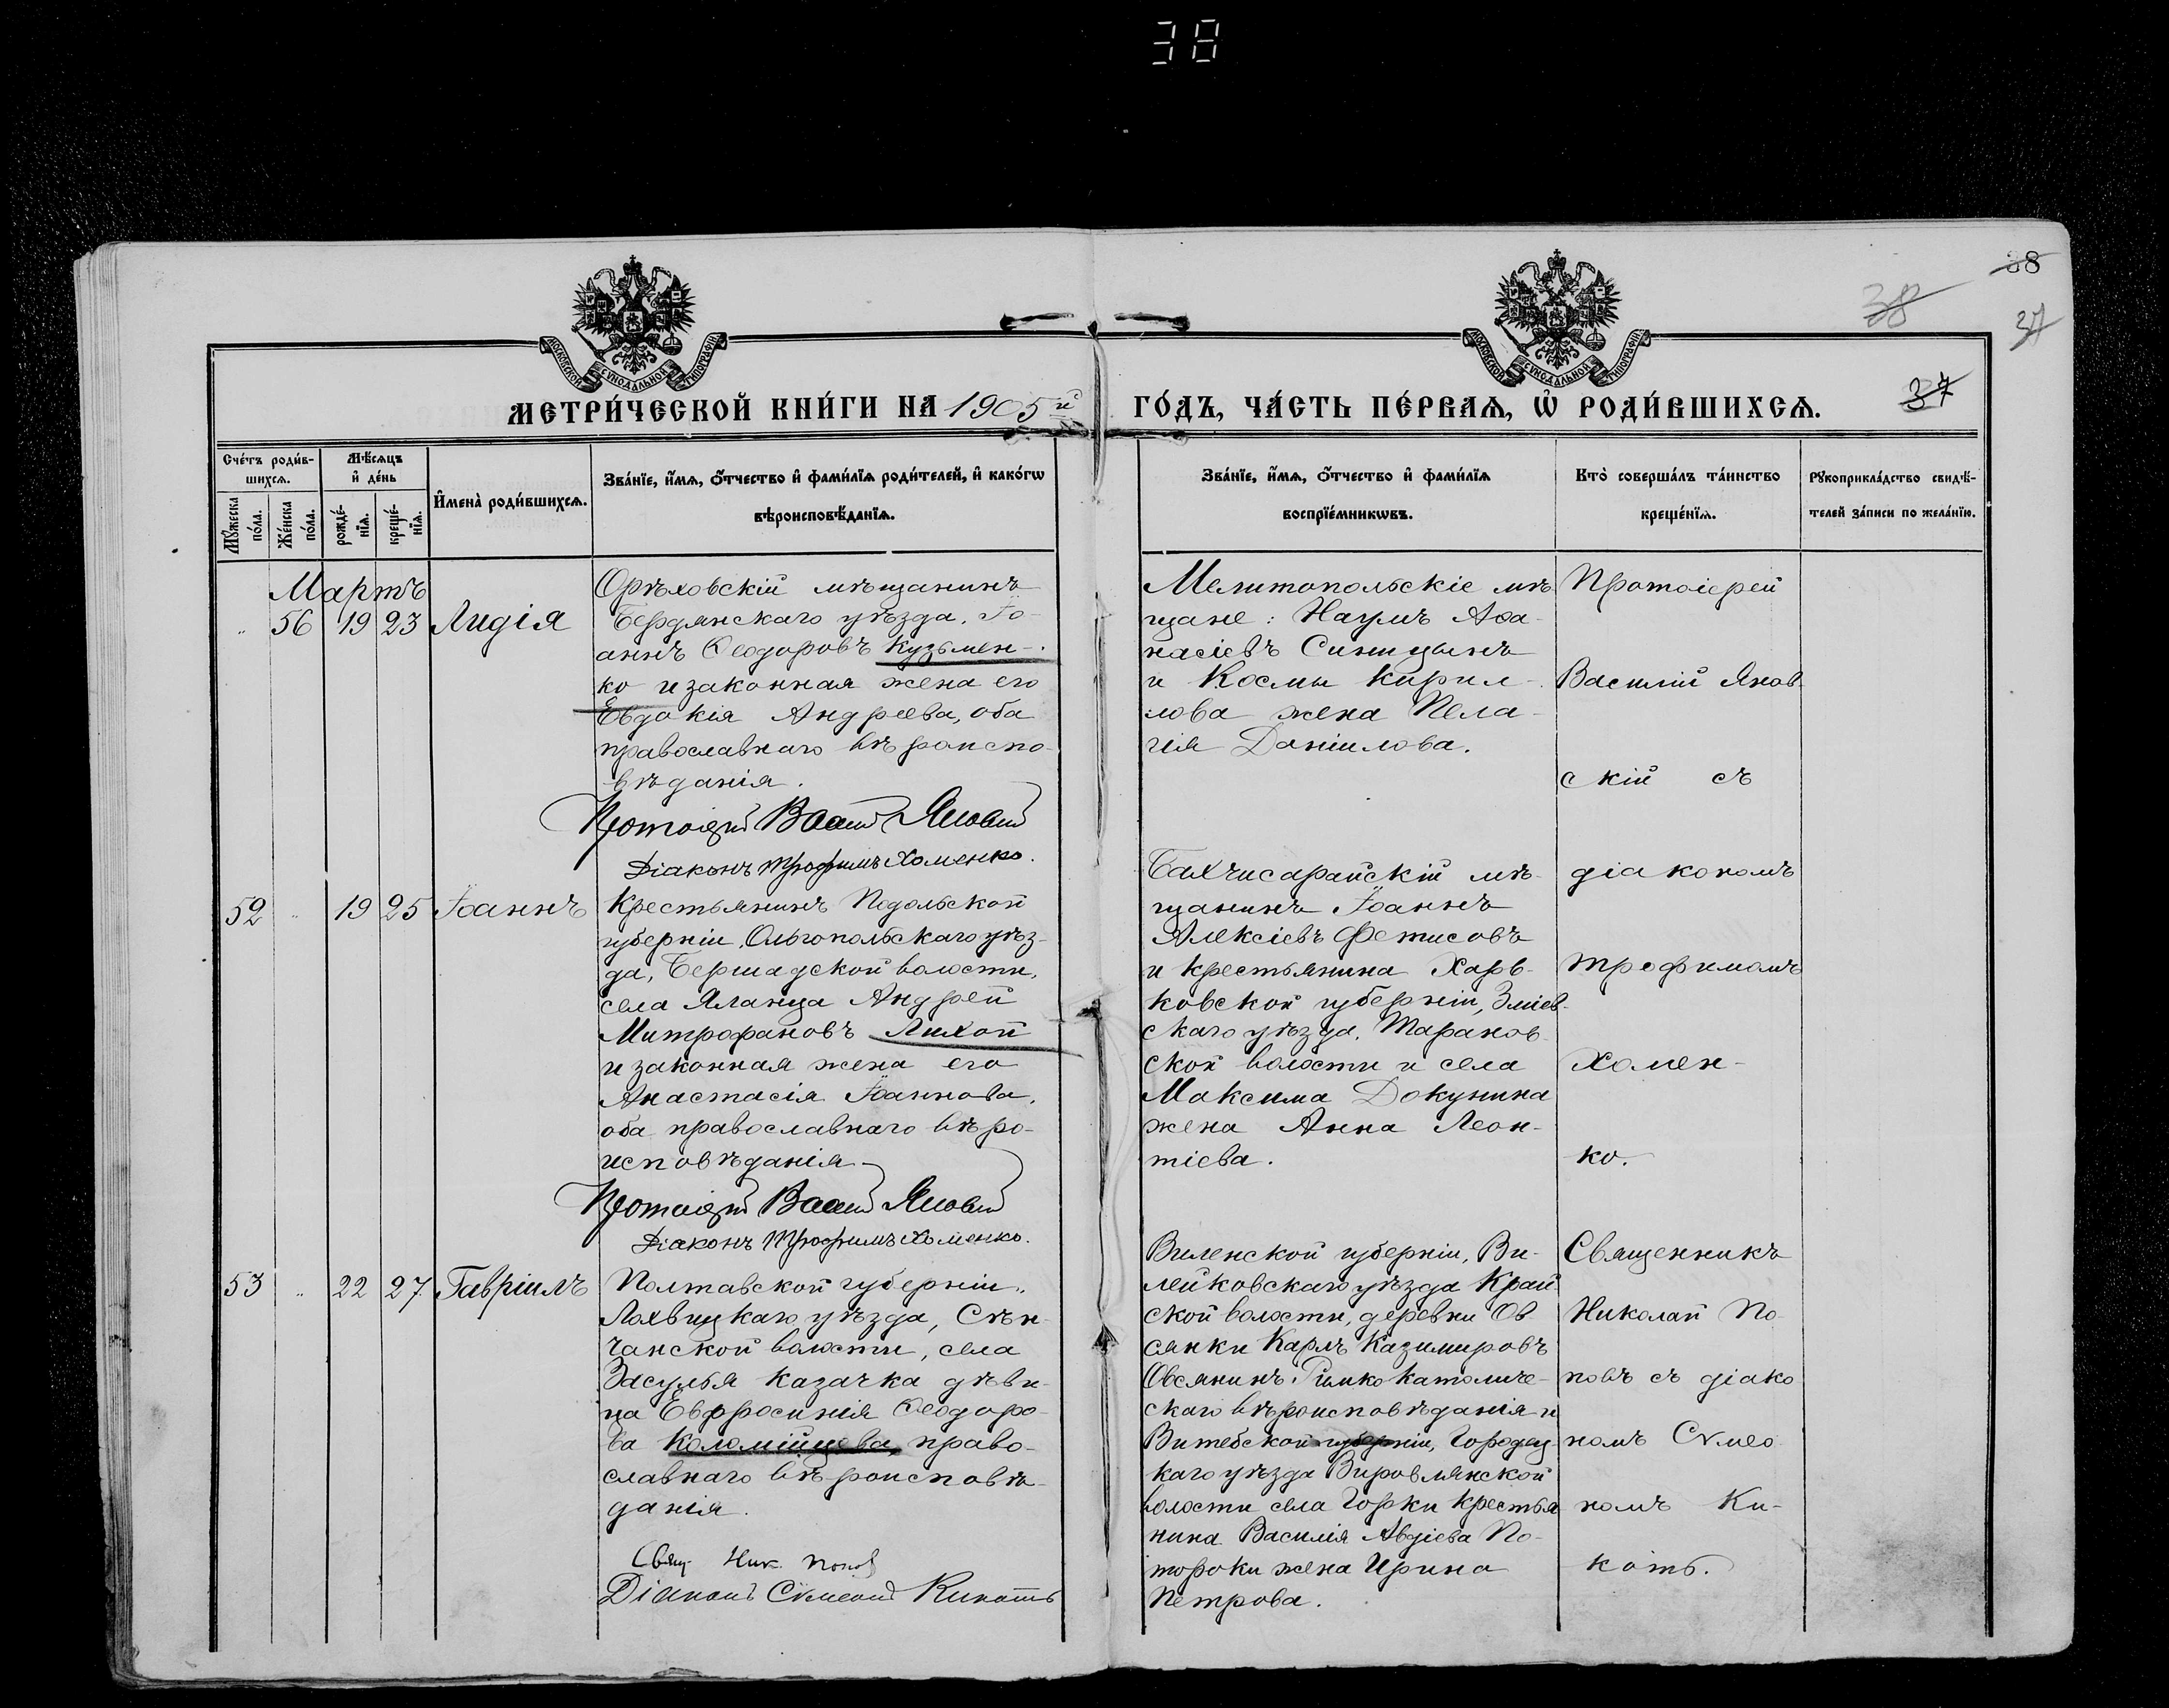 38
38
38
37
37
МОСКОВСКОЙ СѴНОДАЛЬНОЙ ТИПОГРАФІИ
МОСКОВСКОЙ СѴНОДАЛЬНОЙ ТИПОГРАФІИ
МЕТРИ́ЧЕСКОЙ КНИ́ГИ НА 1905й
ГО́ДЪ, ЧА́СТЬ ПЕ́РВАѦ, Ѡ҆ РОДИ́ВШИХСѦ.
Сче́тъ роди́в-
шихсѧ.
Мꙋ́жеска по́ла.
Же́нска по́ла.
Мѣ́сѧцъ
и҆ де́нь
рожде́-
нїѧ.
креще́-
нїѧ.
И҆мена̀ роди́вшихсѧ.
Зва́нїе, и҆́мѧ, ѻ҆́тчество и҆ фами́лїѧ роди́телей, и҆ како́гѡ
вѣроисповѣ́данїѧ.
Зва́нїе, и҆́мѧ, ѻ҆́тчество и҆ фами́лїѧ
воспрїе́мникѡвъ.
Кто̀ соверша́лъ та́инство
креще́нїѧ.
Рꙋкоприкла́дство свидѣ́-
телей за́писи по жела́нїю.
Мартъ
„ 56 19 23 Лидія
Орѣховскій мѣщанинъ
Бердянскаго уѣзда, Іо-
аннъ Ѳеодоровъ Кузьмен-
ко и законная жена его
Евдокія Андреева, оба
православнаго вѣроиспо-
вѣданія.
Протоіерей Василій Яновскій
Діаконъ Трофимъ Хоменко.
Мелитопольскіе мѣ
щане: Наумъ Аѳа-
насіевъ Синицынъ
и Космы Кирил-
лова жена Пела-
гія Даніилова.
Протоіерей
Василій Янов-
скій съ
діакономъ
Трофимомъ
Хомен-
ко.
52 „ 19 25 Іоаннъ
Крестьянинъ Подольской
губерніи, Ольгопольскаго уѣз-
да, Бершадской волости,
села Яланца Андрей
Митрофановъ Лихой
и законная жена его
Анастасія Іоаннова,
оба православнаго вѣро-
исповѣданія.
Протоіерей Василій Яновскій
Діаконъ Трофимъ Хоменко.
Бахчисарайскій мѣ-
щанинъ Іоаннъ
Алексіевъ Фетисовъ
и крестьянина Харь-
ковской губерніи, Зміев-
скаго уѣзда, Таранов-
ской волости и села
Максима Докунина
жена Анна Леон-
тіева.
53 „ 22 27 Гавріилъ
Полтавской губерніи,
Лохвицкаго уѣзда, Сѣн-
чанской волости, села
Засулья казачка дѣви-
ца Евфросинія Ѳеодоро-
ва Коломійцева, право-
славнаго вѣроисповѣ-
данія.
Свящ. Ник. Попов
Діаконъ Сѵмеонъ Кикоть
Виленской губерніи, Ви-
лейковскаго уѣзда Край
ской волости, деревни Ов
сянки Карлъ Казимировъ
Овсянинъ Римко католиче-
скаго вѣроисповѣданія и
Витебской губерніи, Городец
каго уѣзда Вировлянской
волости села Горки крестья
нина Василія Авдіева По-
тороки жена Ирина
Петрова.
Священникъ
Николай По-
повъ съ діако
номъ Сѵмео
номъ Ки-
коть.